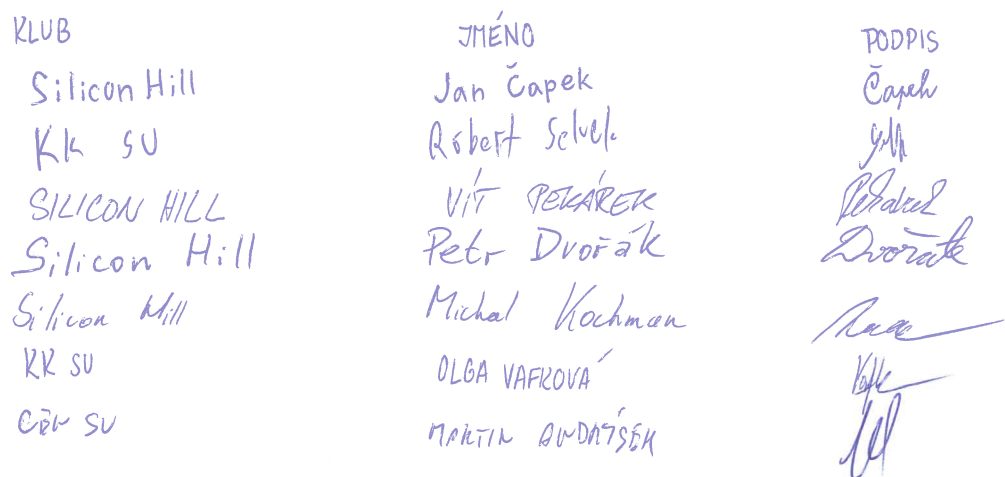 KLUB JMÉNO PODPIS
Silicon Hill Jan Čapek Čapek
KK SU Robert
SILICON HILL VÍT PEKÁREK Pekárek
Silicon Hill Petr Dvořák Dvořák
Silicon Hill Michal Kochman
KK SU OLGA VAFKOVÁ
SU MARTIN